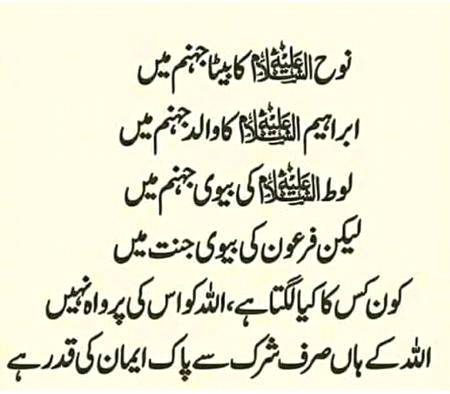 نوح علیہ السلام کا بیٹا جہنم میں
ابراہیم علیہ السلام کا والد جہنم میں
لوط علیہ السلام کی بیوی جہنم میں
لیکن فرعون کی بیوی جنت میں
کون کس کا کیا لگتا ہے، اللہ کو اس کی پرواہ نہیں
اللہ کے ہاں صرف شرک سے پاک ایمان کی قدر ہے